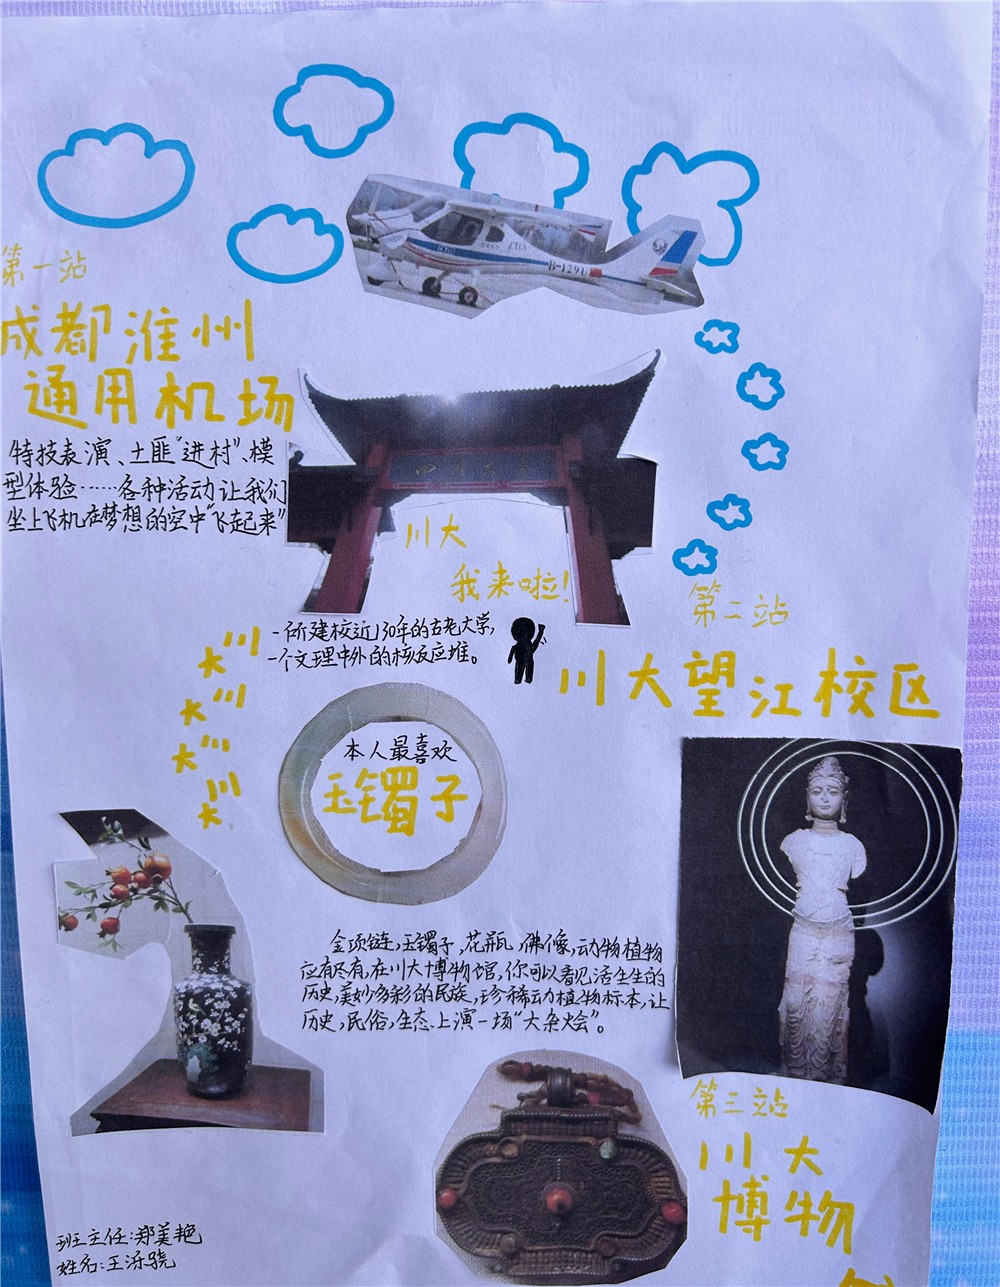 第一站
成都淮州
通用机场
特技表演、土匪“进村”、模
型体验……各种活动让我们
坐上飞机在梦想的空中“飞起来”
B-129U
川大
我来啦!
第二站
川大望江校区
一所建校近130年的古老大学,
一个文理中外的核反应堆。
川大川大川大川大
本人最喜欢
玉镯子
金项链,玉镯子,花瓶,佛像,动物植物
应有尽有,在川大博物馆,你可以看见活生生的
历史,美妙多彩的民族,珍稀动植物标本,让
历史,民俗,生态上演一场“大杂烩”。
第三站
川大
博物
班主任:郑美艳
姓名:王泺骁